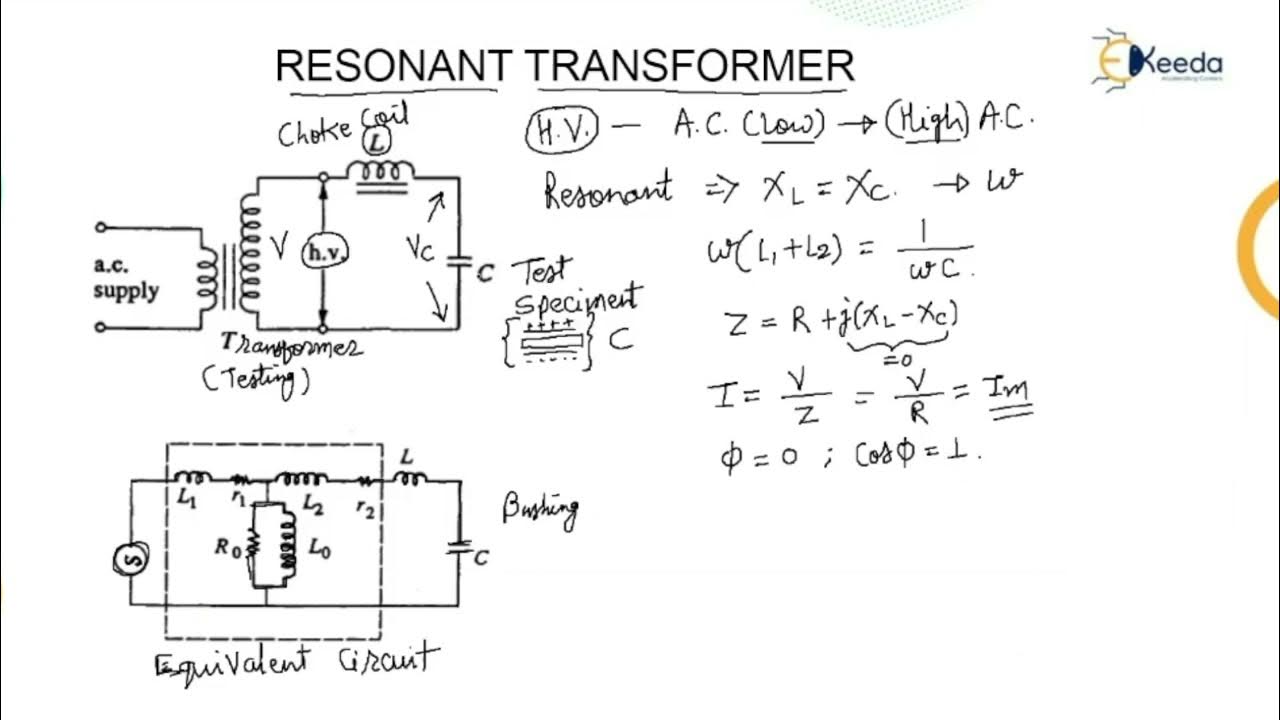 RESONANT TRANSFORMER
EKeeda
Choke Coil
L
a.c.
supply
V
h.v.
Vc
C
Test
Speciment
{ ++++ } C
- - - - -
Transformer
(Testing)
(H.V.) — A.C. (Low) → (High) A.C.
Resonant => XL = XC. → ω
ω(L1+L2) = 1/ωC.
Z = R + j(XL - XC)
=0
I = V/Z = V/R = Im
Φ = 0 ; CosΦ = 1.
L1 r1 L2 r2 L
R0 L0
S
C
Bushing
Equivalent Circuit